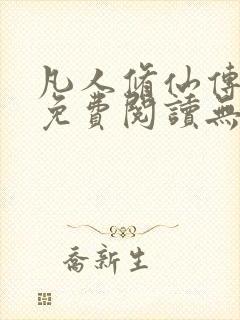 凡人脩仙傳
免費閱讀無
喬新生